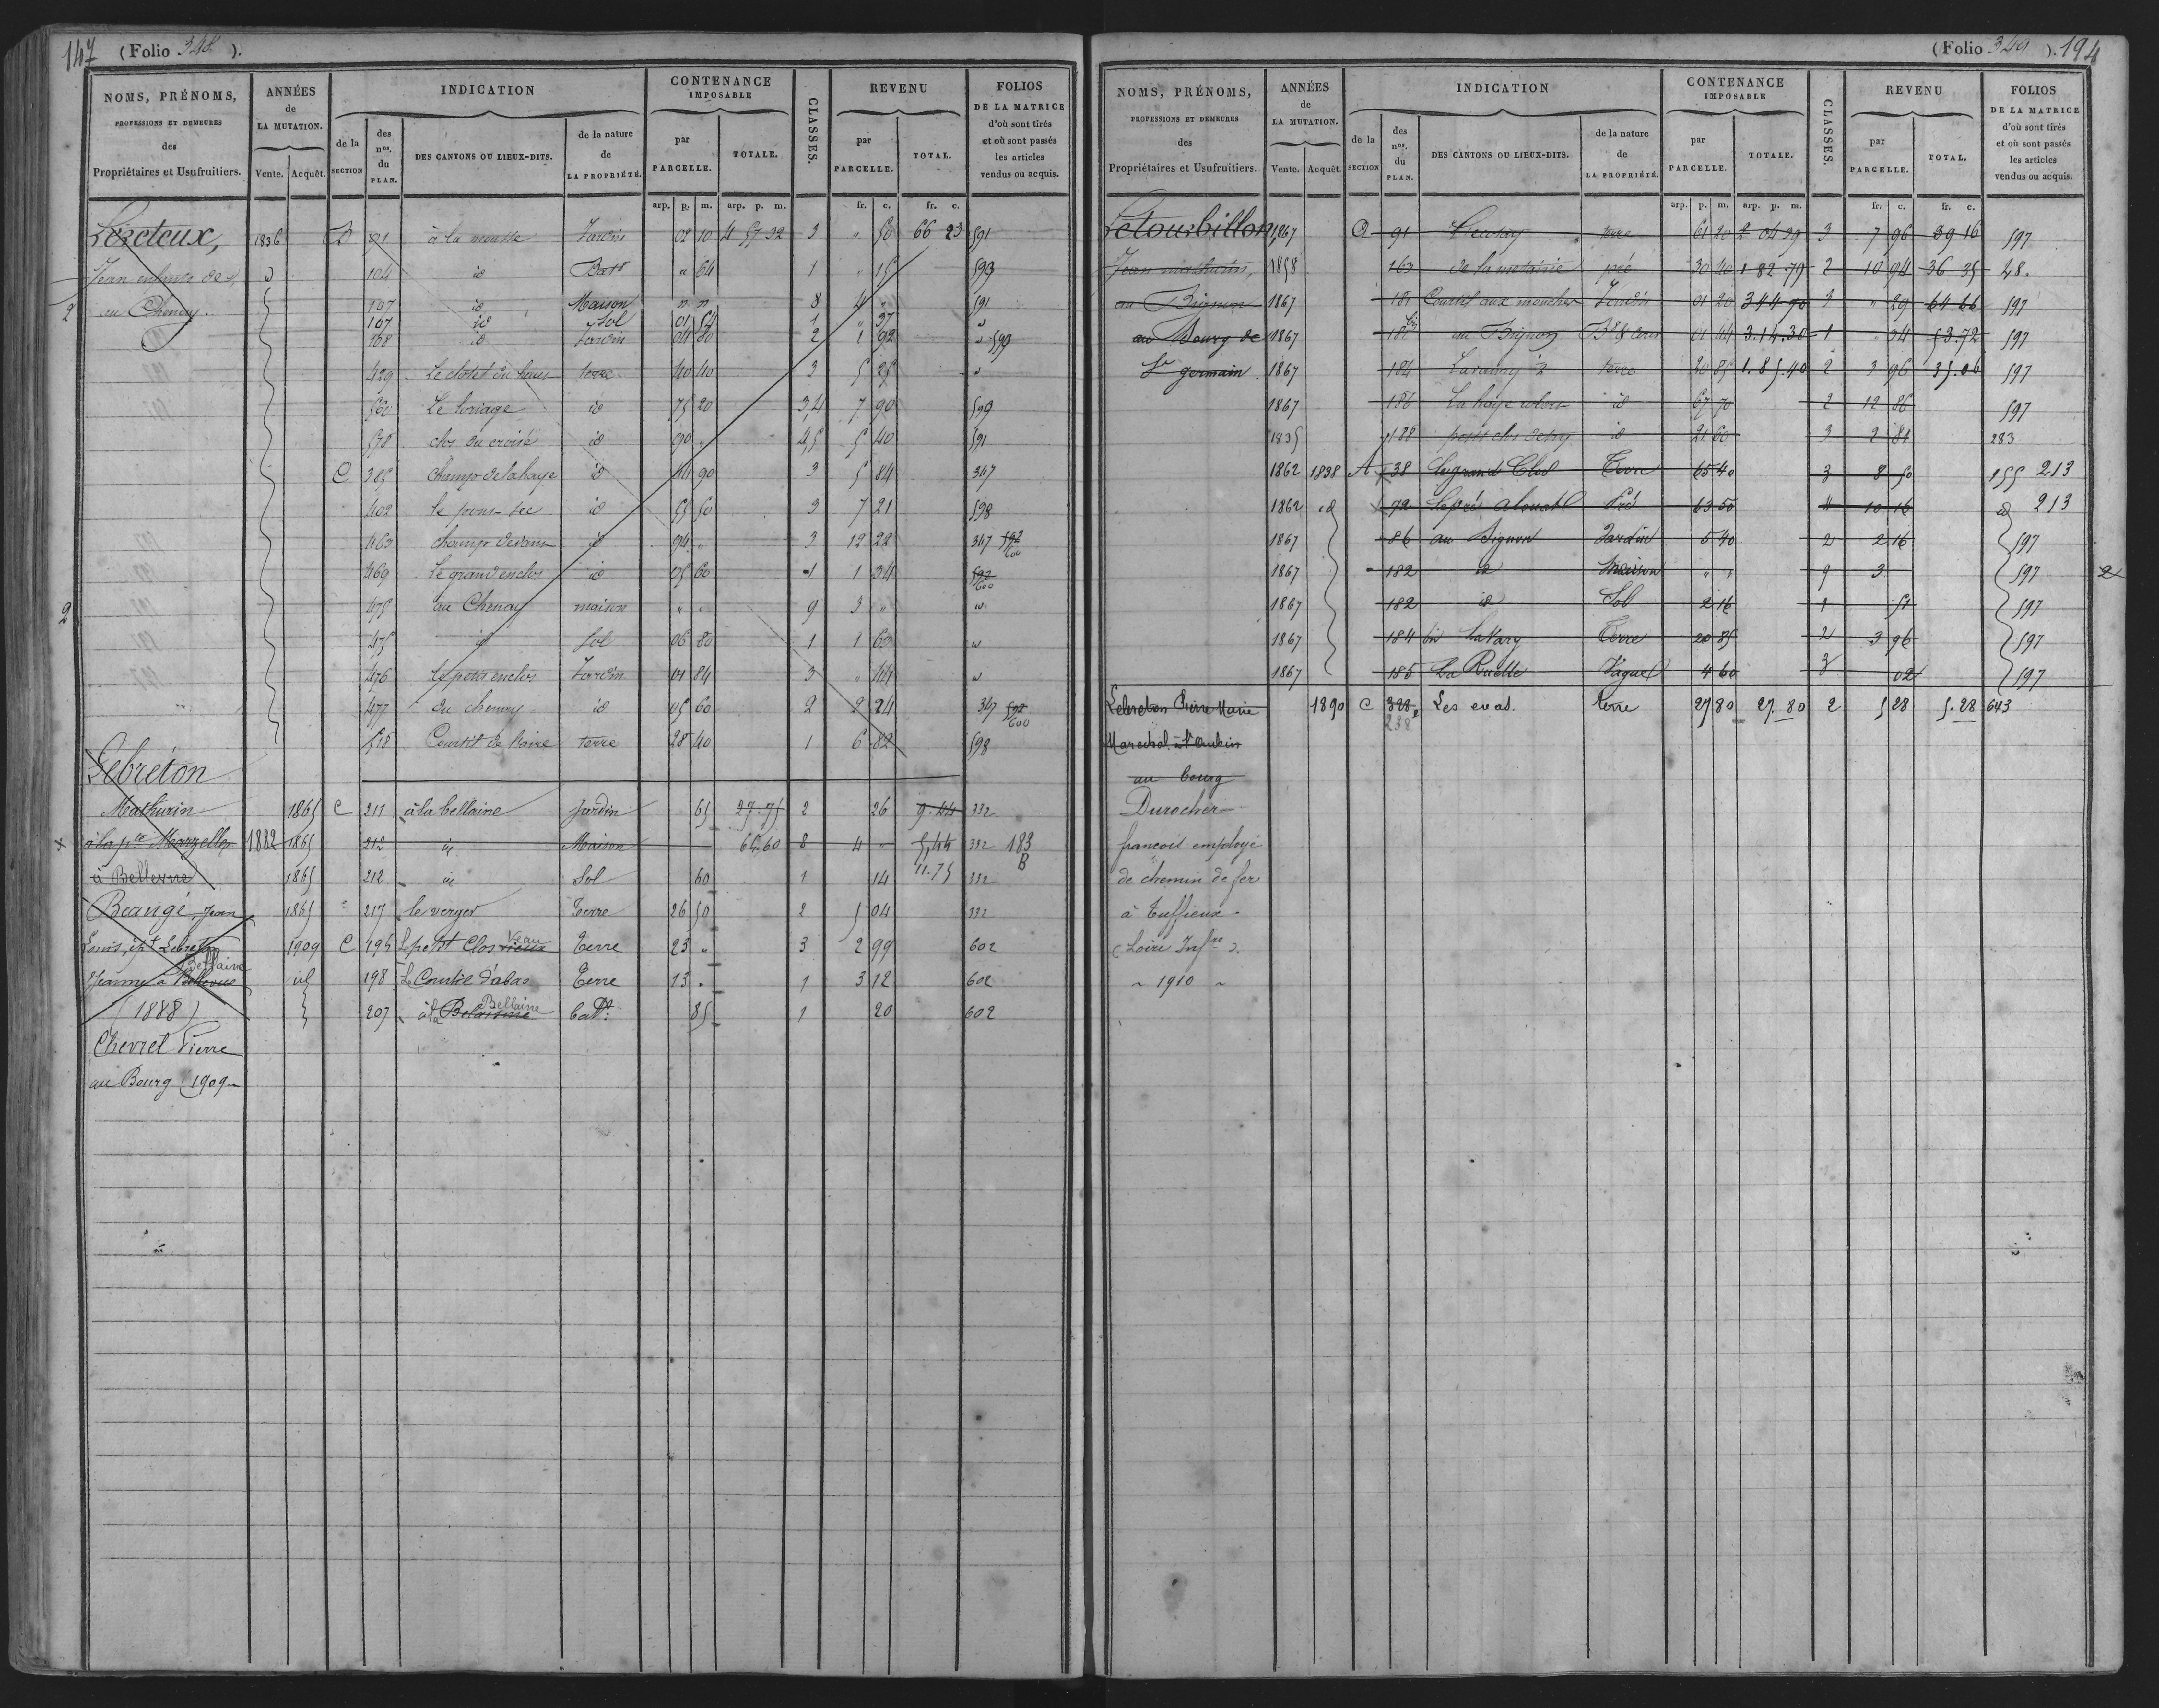 147 (Folio 348 ).
NOMS, PRÉNOMS, PROFESSIONS ET DEMEURES des Propriétaires et Usufruitiers.
ANNÉES de LA MUTATION. Vente. Acquêt.
INDICATION de la SECTION des nos. du PLAN. DES CANTONS OU LIEUX-DITS. de la nature de LA PROPRIÉTÉ.
CONTENANCE IMPOSABLE par PARCELLE. TOTALE.
CLASSES.
REVENU par PARCELLE. TOTAL.
FOLIOS DE LA MATRICE d'où sont tirés et où sont passés les articles vendus ou acquis.
arp. p. m. arp. p. m. fr. c. fr. c.
1836 B 91 à la mousse Jardin 02 10 4 57 32 3 " 50 66 23 591
Jean enfants de id 104 id Batt " 64 1 " 15 593
2 au Chenay. 107 id Maison " " 8 4 " 591
107 id Sol 01 54 1 " 37 id
108 id Jardin 04 80 2 1 92 id 599
429 Le closet du haut terre 40 40 3 5 25 id
560 Le Toriage id 75 20 34 7 90 599
578 clos du croisé id 90 " 45 5 40 591
C 385 champ de la haye id 44 90 3 5 84 347
402 le pont sec id 55 50 3 7 21 598
463 champ devant id 94 " 3 12 22 347 592 600
469 Le grand enclos id 05 60 1 1 34 592 600
2 475 au Chenay maison " " 9 3 " id
475 id Sol 06 80 1 1 63 id
476 le petit enclos Jardin 01 84 3 " 44 id
477 du chenay id 05 60 2 2 24 347 592 600
518 Courtil de l'aire terre 28 40 1 6 82 598
Lebreton
Mathurin 1865 C 211 à la bellaine Jardin 65 27.75 2 26 9.44 332
x à la pte Marzelle 1882 1865 212 id Maison 64.60 8 4 " 5,44 332 183 B
à Bellevue 1865 212 id Sol 60 1 14 11.75 332
Beangé, Jean 1865 217 le verger Terre 26 50 2 5 04 332
Louis, ép. Lebreton 1909 C 195 Le petit Clos vieux Veau Terre 23 " 3 2 99 602
Jeanne à Bellevue Bellaine id 198 Le Courtil d'abas Terre 13 " 1 3 12 602
(1888) 207 à la Bellaine batt: 85 1 20 602
Chevrel Pierre
au Bourg (1909-
(Folio 349 ). 194
NOMS, PRÉNOMS, PROFESSIONS ET DEMEURES des Propriétaires et Usufruitiers.
ANNÉES de LA MUTATION. Vente. Acquêt.
INDICATION de la SECTION des nos. du PLAN. DES CANTONS OU LIEUX-DITS. de la nature de LA PROPRIÉTÉ.
CONTENANCE IMPOSABLE par PARCELLE. TOTALE.
CLASSES.
REVENU par PARCELLE. TOTAL.
FOLIOS DE LA MATRICE d'où sont tirés et où sont passés les articles vendus ou acquis.
arp. p. m. arp. p. m. fr. c. fr. c.
Letourbillon, 1867 A 91 terre 61 20 2 04 39 3 7 96 39 16 597
Jean mathurin, 1858 163 de la metairie pré 30 40 1 82 79 2 10 94 36 35 48.
au Bignon 1867 181 Courtil aux mouches Jardin 01 20 3 44 90 3 " 29 64 66 597
au Bourg de 1867 181 bis au Bignon Bt & cour 01 44 3.14.30 1 " 34 53.72 597
St germain 1867 184 terre 20 85 1.85.40 2 3 96 35.06 597
1867 186 La haye robert id 67 70 2 12 86 597
1835 188 petit clos id 21 60 3 2 81 283
1862 1838 A 38 Le grand Clos Terre 65 40 3 8 50 155 213
1862 id 92 Le pré Pré 63 50 4 10 16 id 213
1867 86 au Bignon Jardin 5 40 2 2 16 597
1867 182 id Maison " " 9 3 597 2
1867 182 id Sol 2 16 1 51 597
1867 184 bis La Vary Terre 20 85 2 3 96 597
1867 185 La Ruelle Vague 4 60 3 02 597
Lebreton Pierre Marie 1890 C 328 238 Les evas. terre 27 80 27 80 2 5 28 5.28 643
Marechal à St Aubin
au bourg
Durocher
francois employé
de chemin de fer
à Tuffieux.
(Loire Infre).
~ 1910 ~